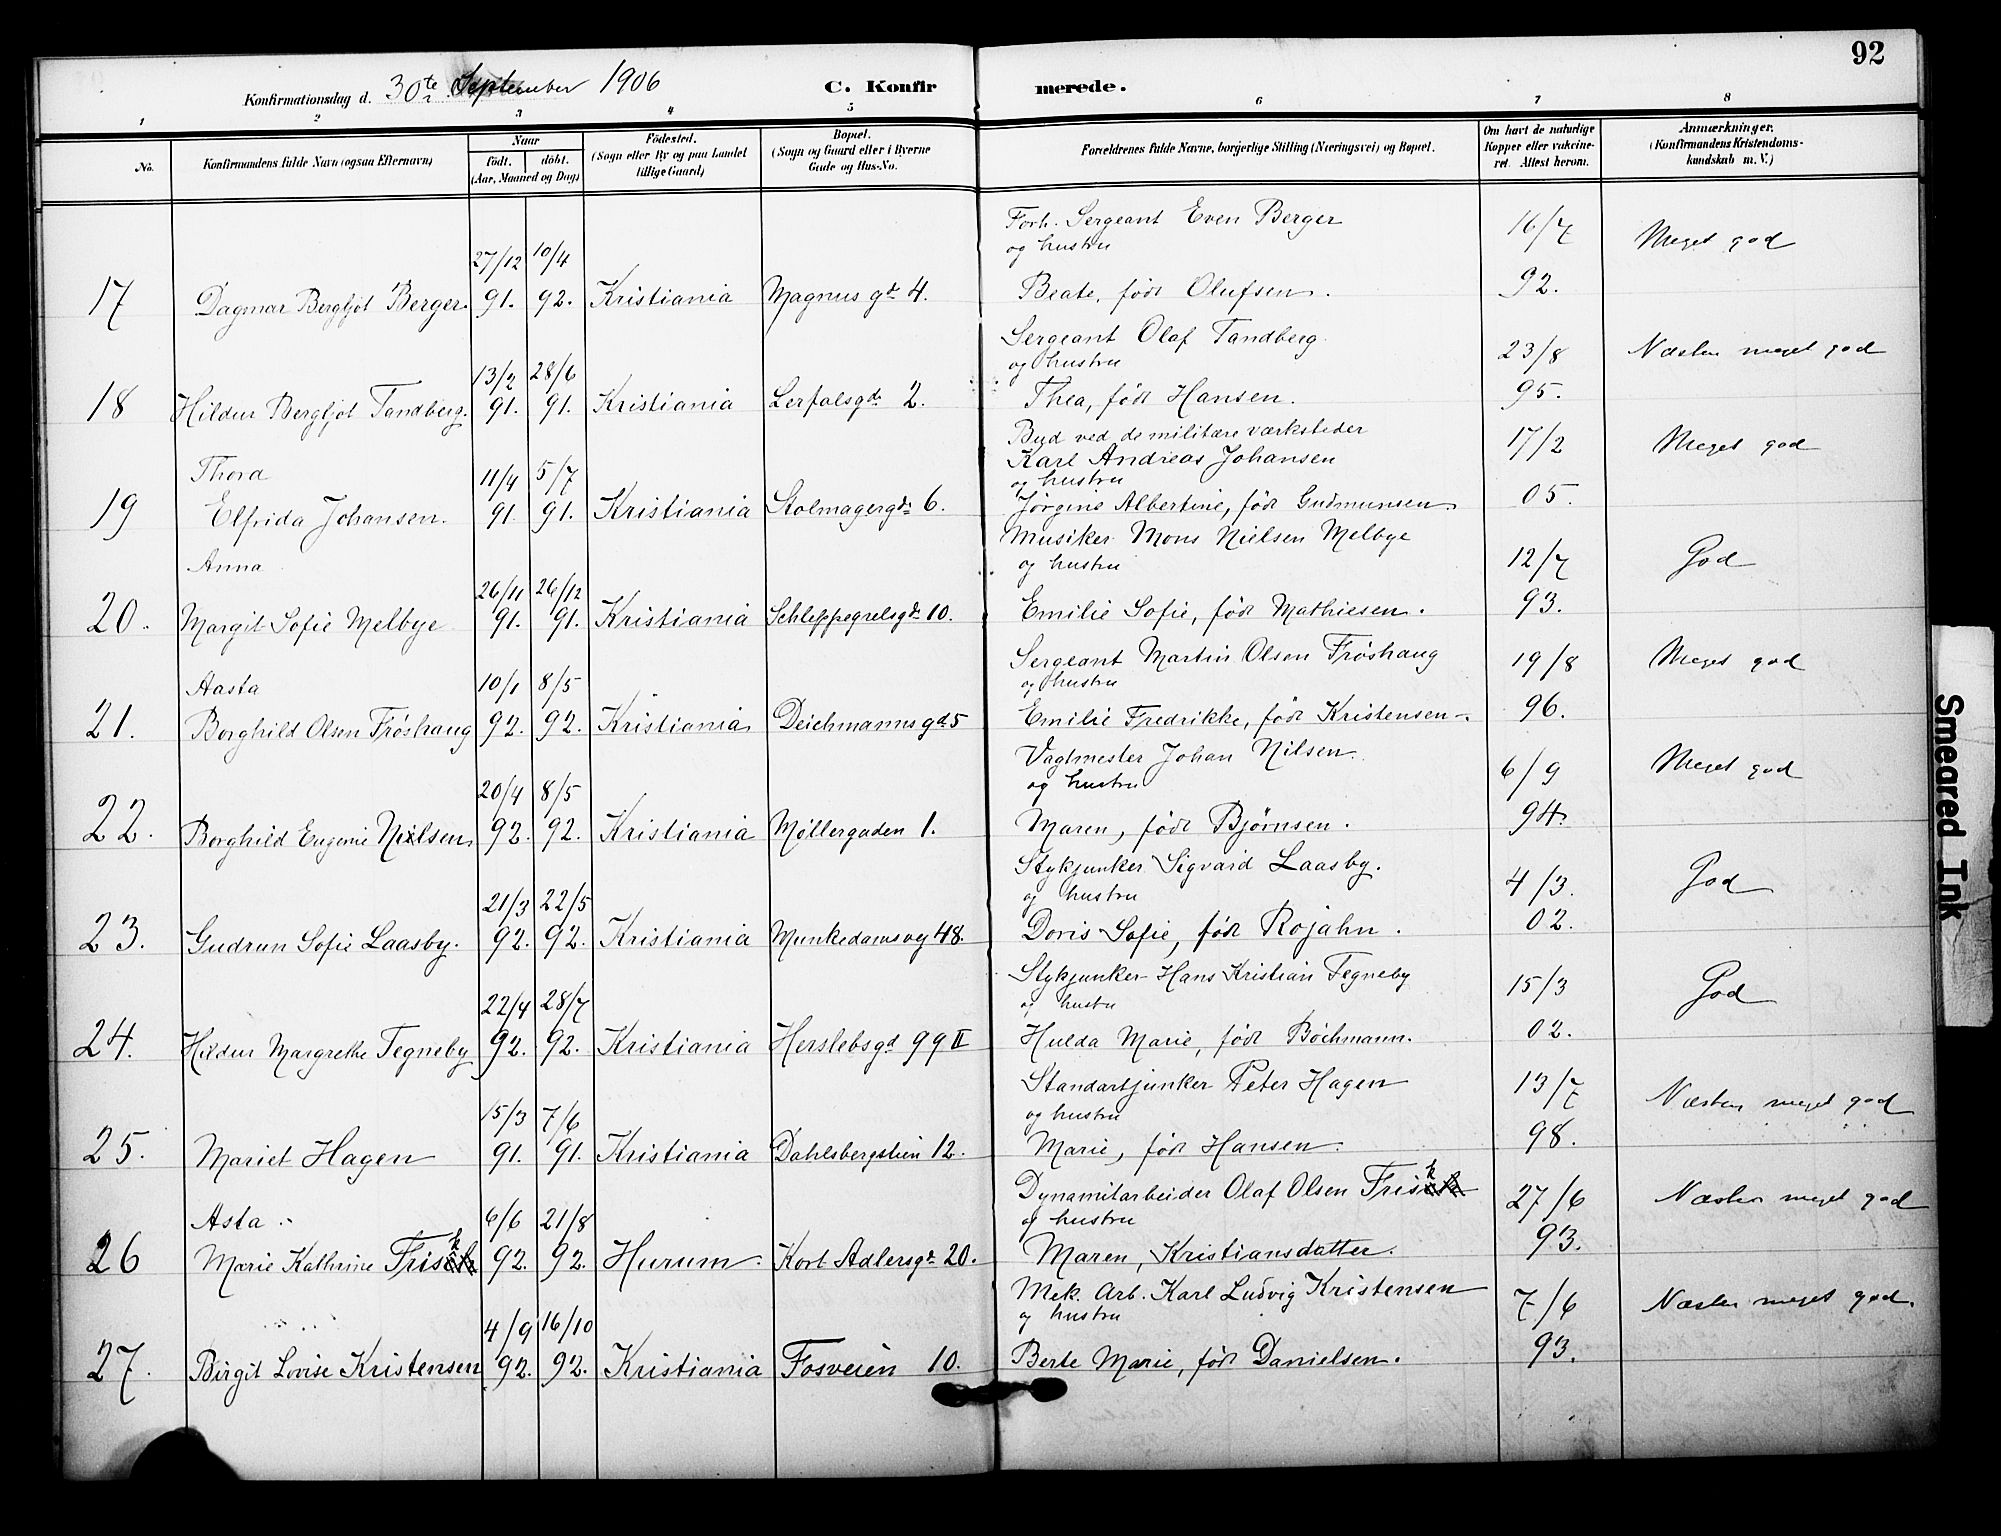 92
Konfirmationsdag d. 30te September 1906 C. Konfirmerede.
1 2 3 4 5 6 7 8
No.
Konfirmandens fulde Navn (ogsaa Efternavn)
Naar
født. døbt.
(Aar, Maaned og Dag)
Fødested.
(Sogn eller By og paa Landet
tillige Gaard)
Bopæl.
(Sogn og Gaard eller i Byerne
Gade og Hus-No.
Forældrenes fulde Navne, borgerlige Stilling (Næringsvei) og Bopæl.
Om havt de naturlige
Kopper eller vakcine-
ret. Attest herom.
Anmærkninger.
(Konfirmandens Kristendoms-
kundskab m. V.)
Forh. Sergeant Even Berger 16/7 Meget god
27/12 10/4 og hustru
17 Dagmar Bergljot Berger 91. 92. Kristiania Magnus gt 4. Beate, født Olufsen. 92.
Sergeant Olaf Tandberg 23/8 Næsten meget god
13/2 28/6 og hustru
18 Hildur Bergljot Tandberg. 91. 91. Kristiania Lerfalsgd. 2. Thea, født Hansen. 95.
Bud ved de militære værksteder 17/2 Meget god
Thora 11/4 5/7 Karl Andreas Johansen
og hustru
19 Elfrida Johansen. 91. 91. Kristiania Stolmagergd. 6. Jørgine Albertine, født Gudmunsen. 05.
Musiker Mons Nielsen Melbye
Anna 26/11 26/12 og hustru 12/7 God
20. Margit Sofie Melbye 91. 91. Kristiania Schleppegrelsgd. 10. Emilie Sofie, født Mathiesen. 93.
Sergeant Martin Olsen Frøshaug 19/8 Meget god
Aasta 10/1 8/5 og hustru
21. Borghild Olsen Frøshaug 92. 92. Kristiania Deichmanns gd 5 Emilie Fredrikke, født Kristensen. 96.
Vagtmester Johan Nilsen. 6/9 Meget god
20/4 8/5 og hustru
22. Borghild Eugenie Nilsen 92. 92. Kristiania Møllergaden 1. Maren, født Bjørnsen. 94.
Stykjunker Sigvard Laasby. 4/3. God
21/3 22/5 og hustru
23. Gudrun Sofie Laasby. 92. 92. Kristiania Munkedamsvej 48. Doris Sofie, født Rojahn. 02.
Stykjunker Hans Kristian Tegneby 15/3 God
22/4 28/7 og hustru
24. Hildur Margrethe Tegneby 92. 92. Kristiania Herslebsgd 99 II Hulda Marie, født Böchmann. 02.
Standartjunker Peter Hagen 13/7 Næsten meget god
15/3 7/6 og hustru
25. Mariet Hagen 91. 91. Kristiania Dahlsbergstien 12. Marie, født Hansen. 98.
Dynamitarbeider Olaf Olsen Frisk 27/6 Næsten meget god
Asta 6/6 21/8 og hustru
26 Marie Kathrine Frisk 92. 92. Hurum. Kort Adlersgt. 20. Maren, Kristiansdatter. 93.
Mek. Arb. Karl Ludvig Kristensen 7/6 Næsten meget god.
4/9 16/10 og hustru
27. Birgit Lovise Kristensen 92. 92. Kristiania Fosveien 10. Berte Marie, født Danielsen. 93.
Smeared Ink